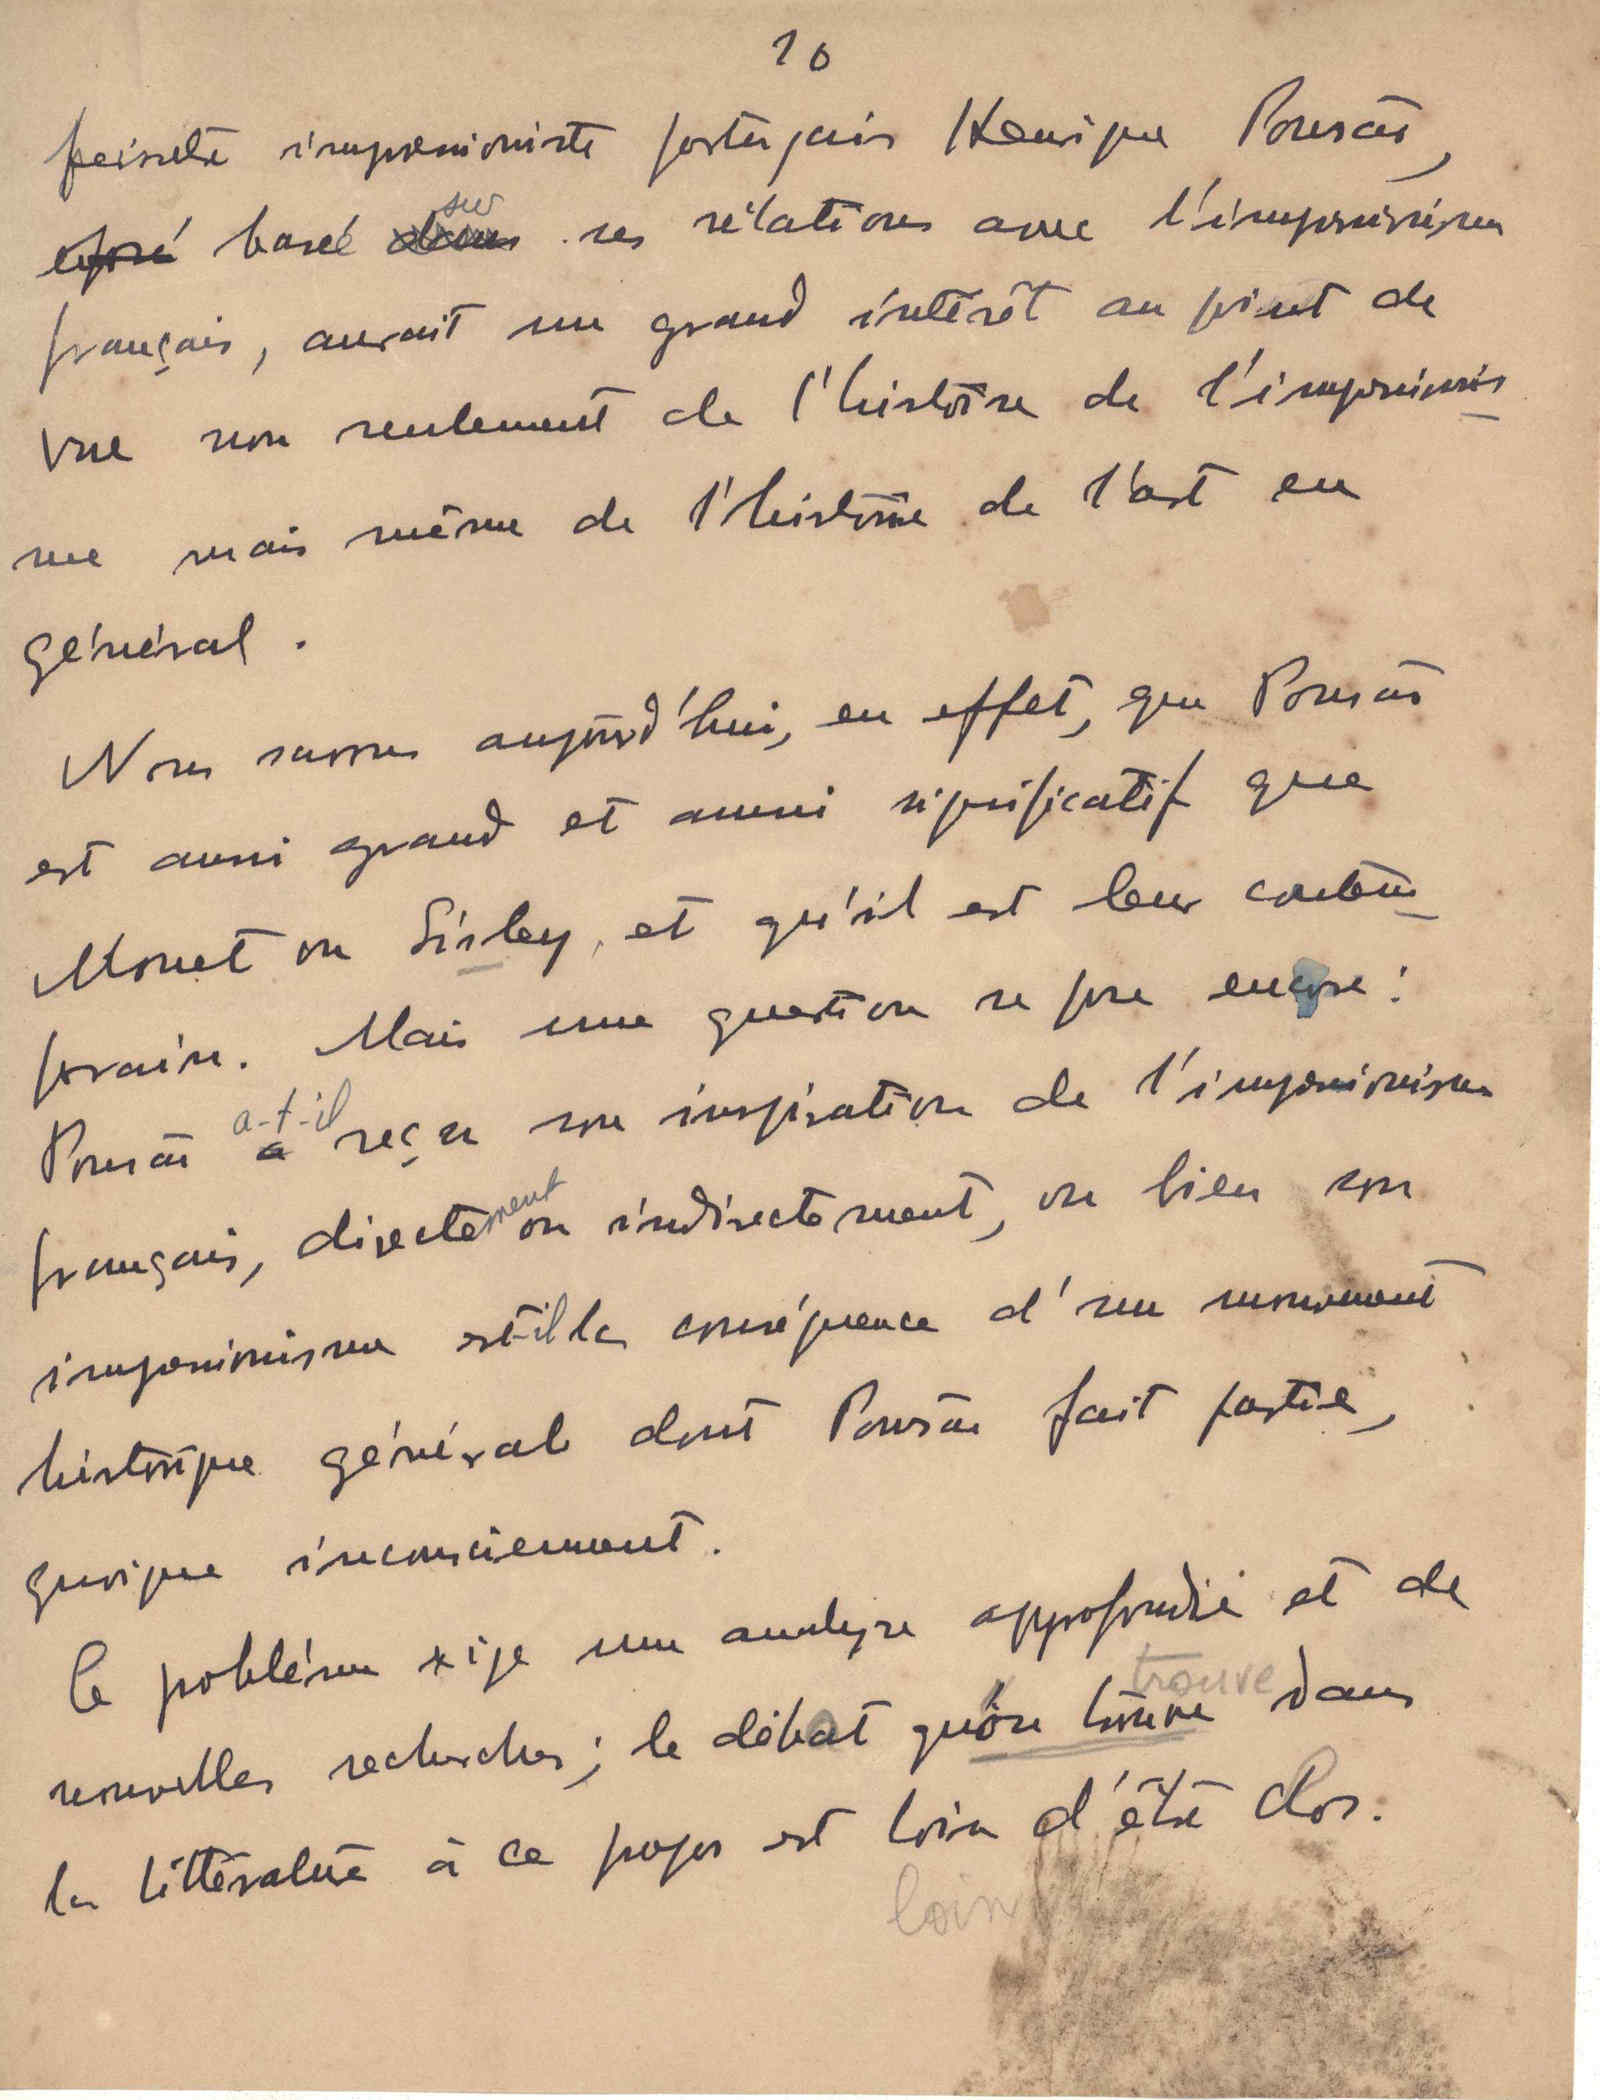 10
peintre impressioniste portugais Henrique Pousão,
exposé basé dans sur ses rélations avec l'impressionisme
français, aurait un grand intérêt au point de
vue non seulement de l'histoire de l'impressionis-
me mais même de l'histoire de l'art en
général.
Nous savons aujourd'hui, en effet, que Pousão
est aussi grand et aussi significatif que
Monet ou Sisley, et qu'il est leur contem-
porain. Mais une question se pose encore :
Pousão a a-t-il reçu son inspiration de l'impressionisme
français, directement ou indirectement, ou bien son
impressionisme est-il la conséquence d'un mouvement
historique général dont Pousão fait partie,
quoique inconsciemment.
Ce problème exige une analyse approfondie et de
trouve
nouvelles recherches ; le débat qu'on trouve dans
la littérature à ce propos est loin d'être clos.
loin